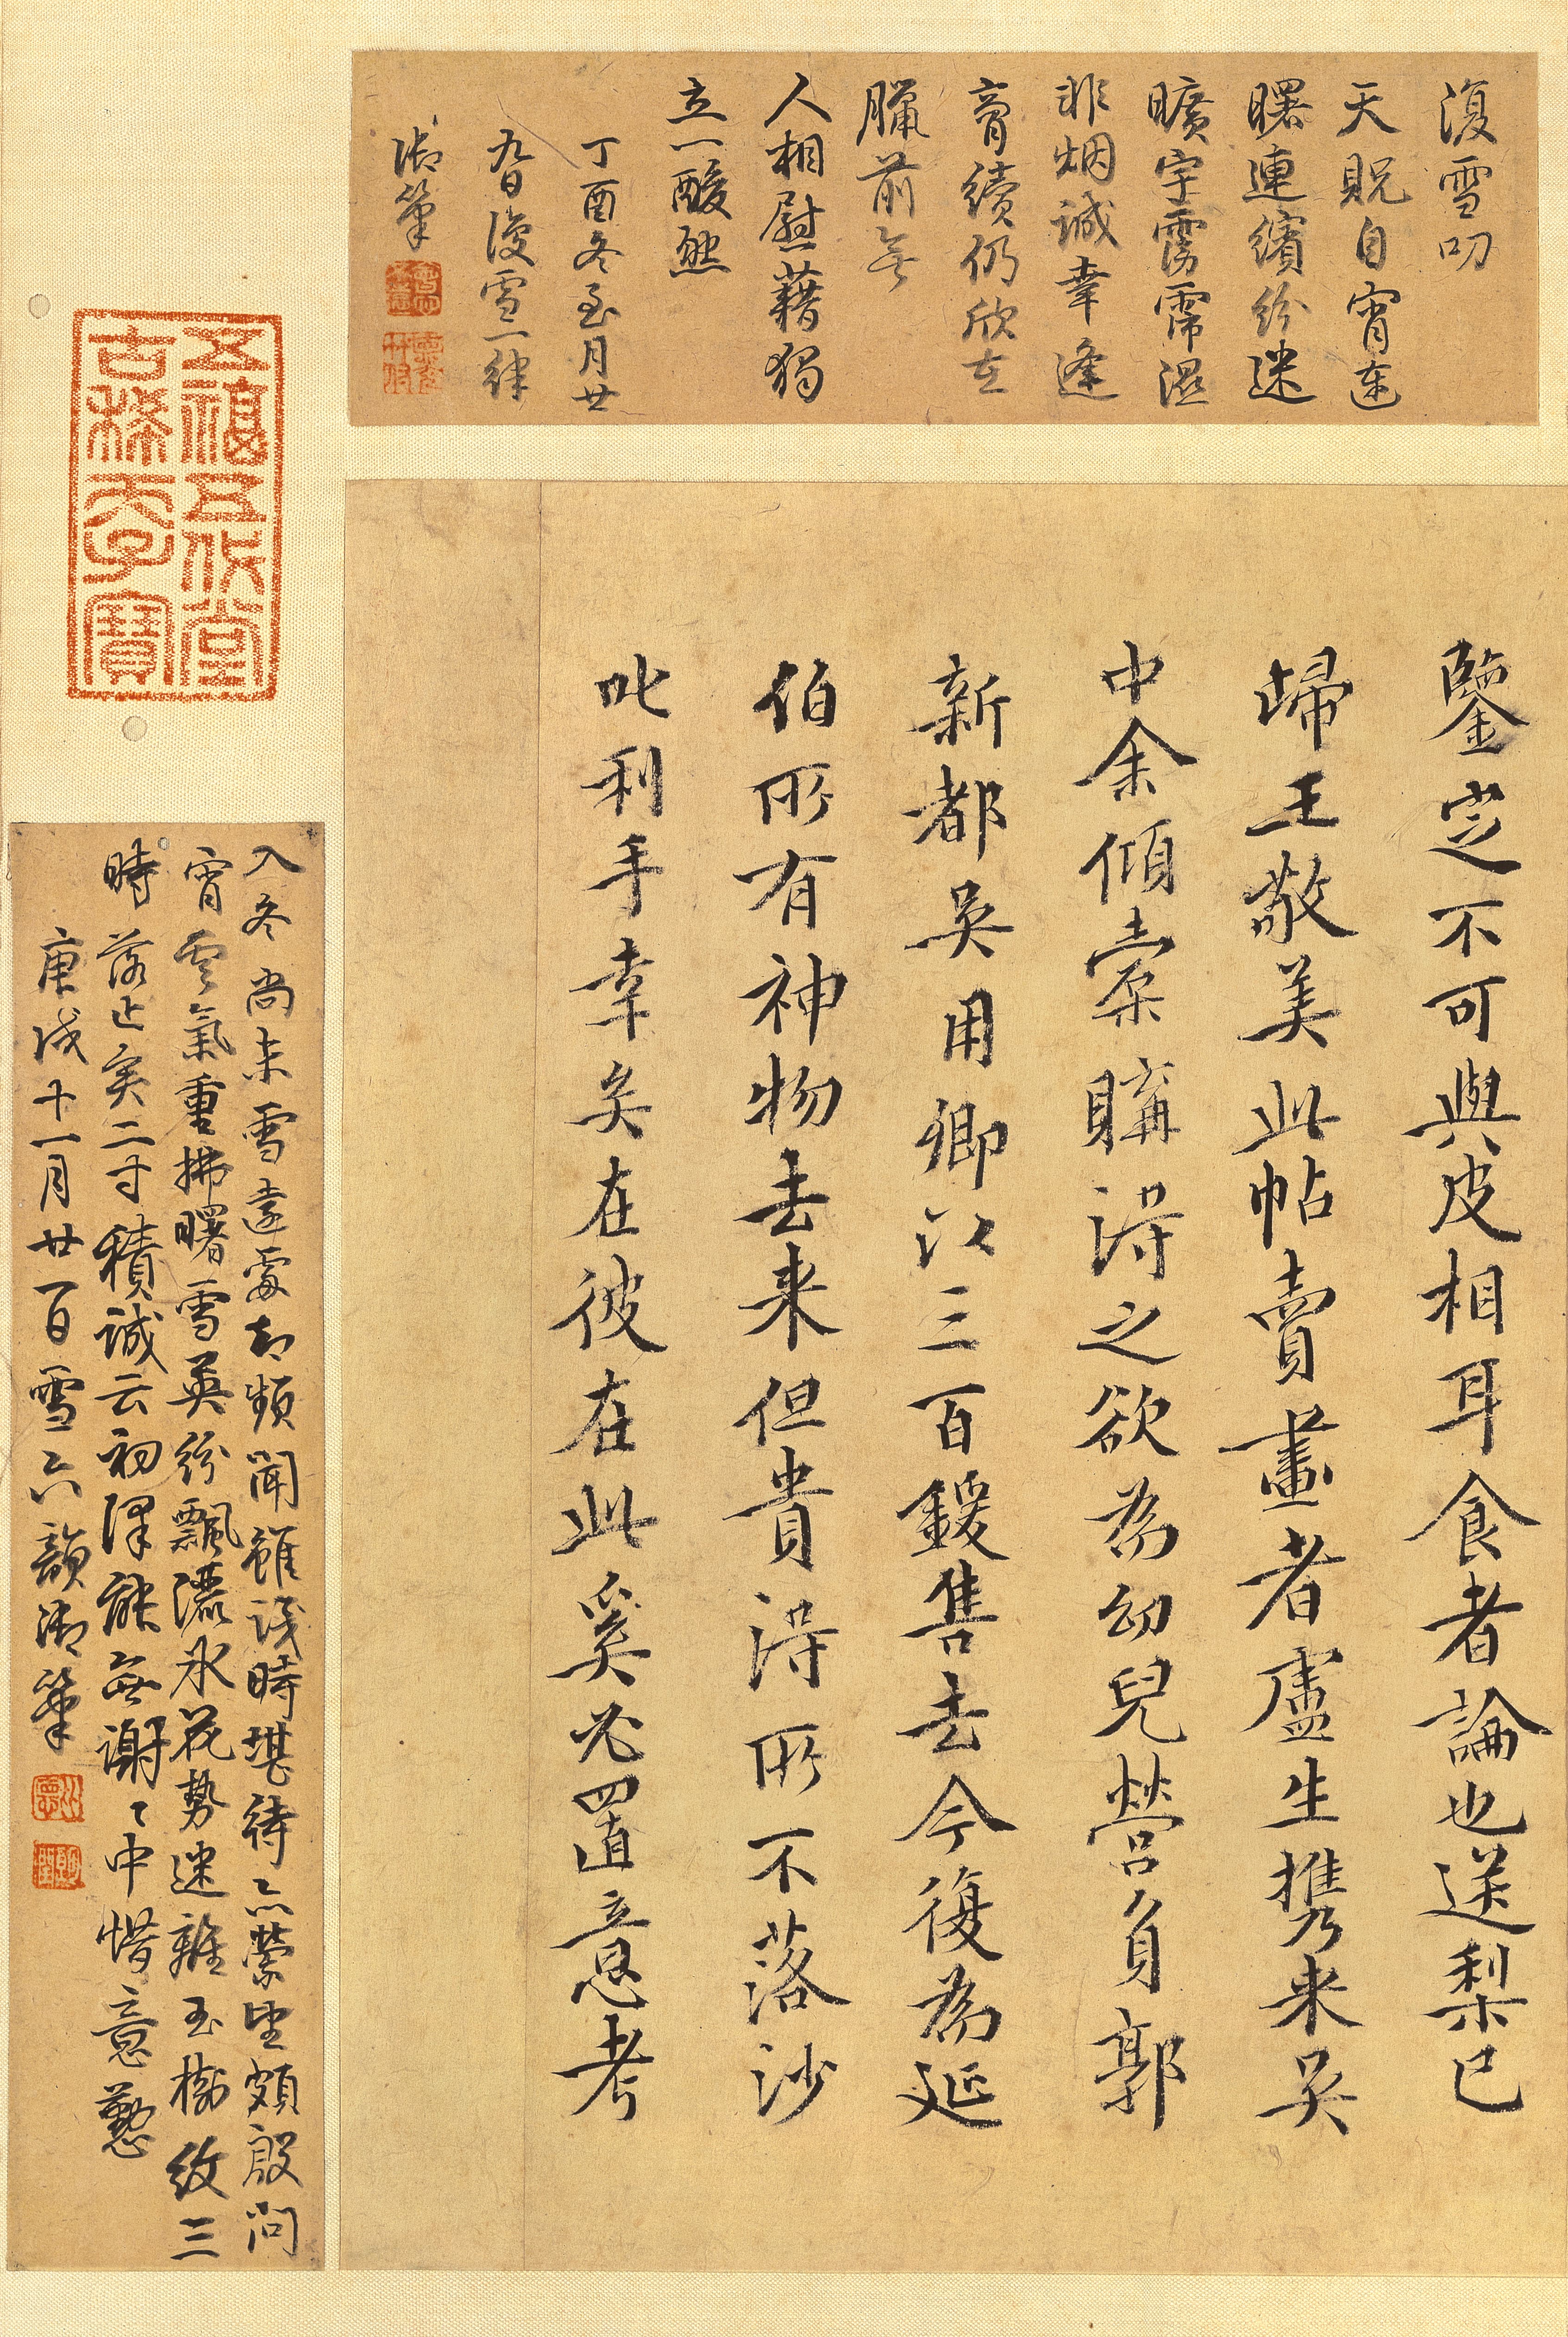 復雪叨
天貺自宵達
曙連繽紛迷
曠宇霶霈濕
非烟誠幸逢
膏續仍欣在
臘前無
人相慰藉獨
立一酸然
丁酉冬至月廿
九日復雪一律
御筆
鑒定不可與皮相耳食者論也送梨已
歸王敬美此帖賣畫者盧生攜來吳
中余傾槖購得之欲為幼兒營負郭
新都吳用卿以三百鍰售去今復為延
伯所有神物去来但貴得所不落沙
叱利手幸矣在彼在此奚必置意考
五福五代堂
古稀天子寶
入冬尚未雪遠處却頻聞雖淺時堪待亦縈望頗殷問
宵雲氣重拂曙雪英紛飄灑氷花勢迷離玉樹紋三
時落止矣二寸積誠云初澤能無謝謝中惜意懃
庚戌十一月廿一日雪六韻御筆